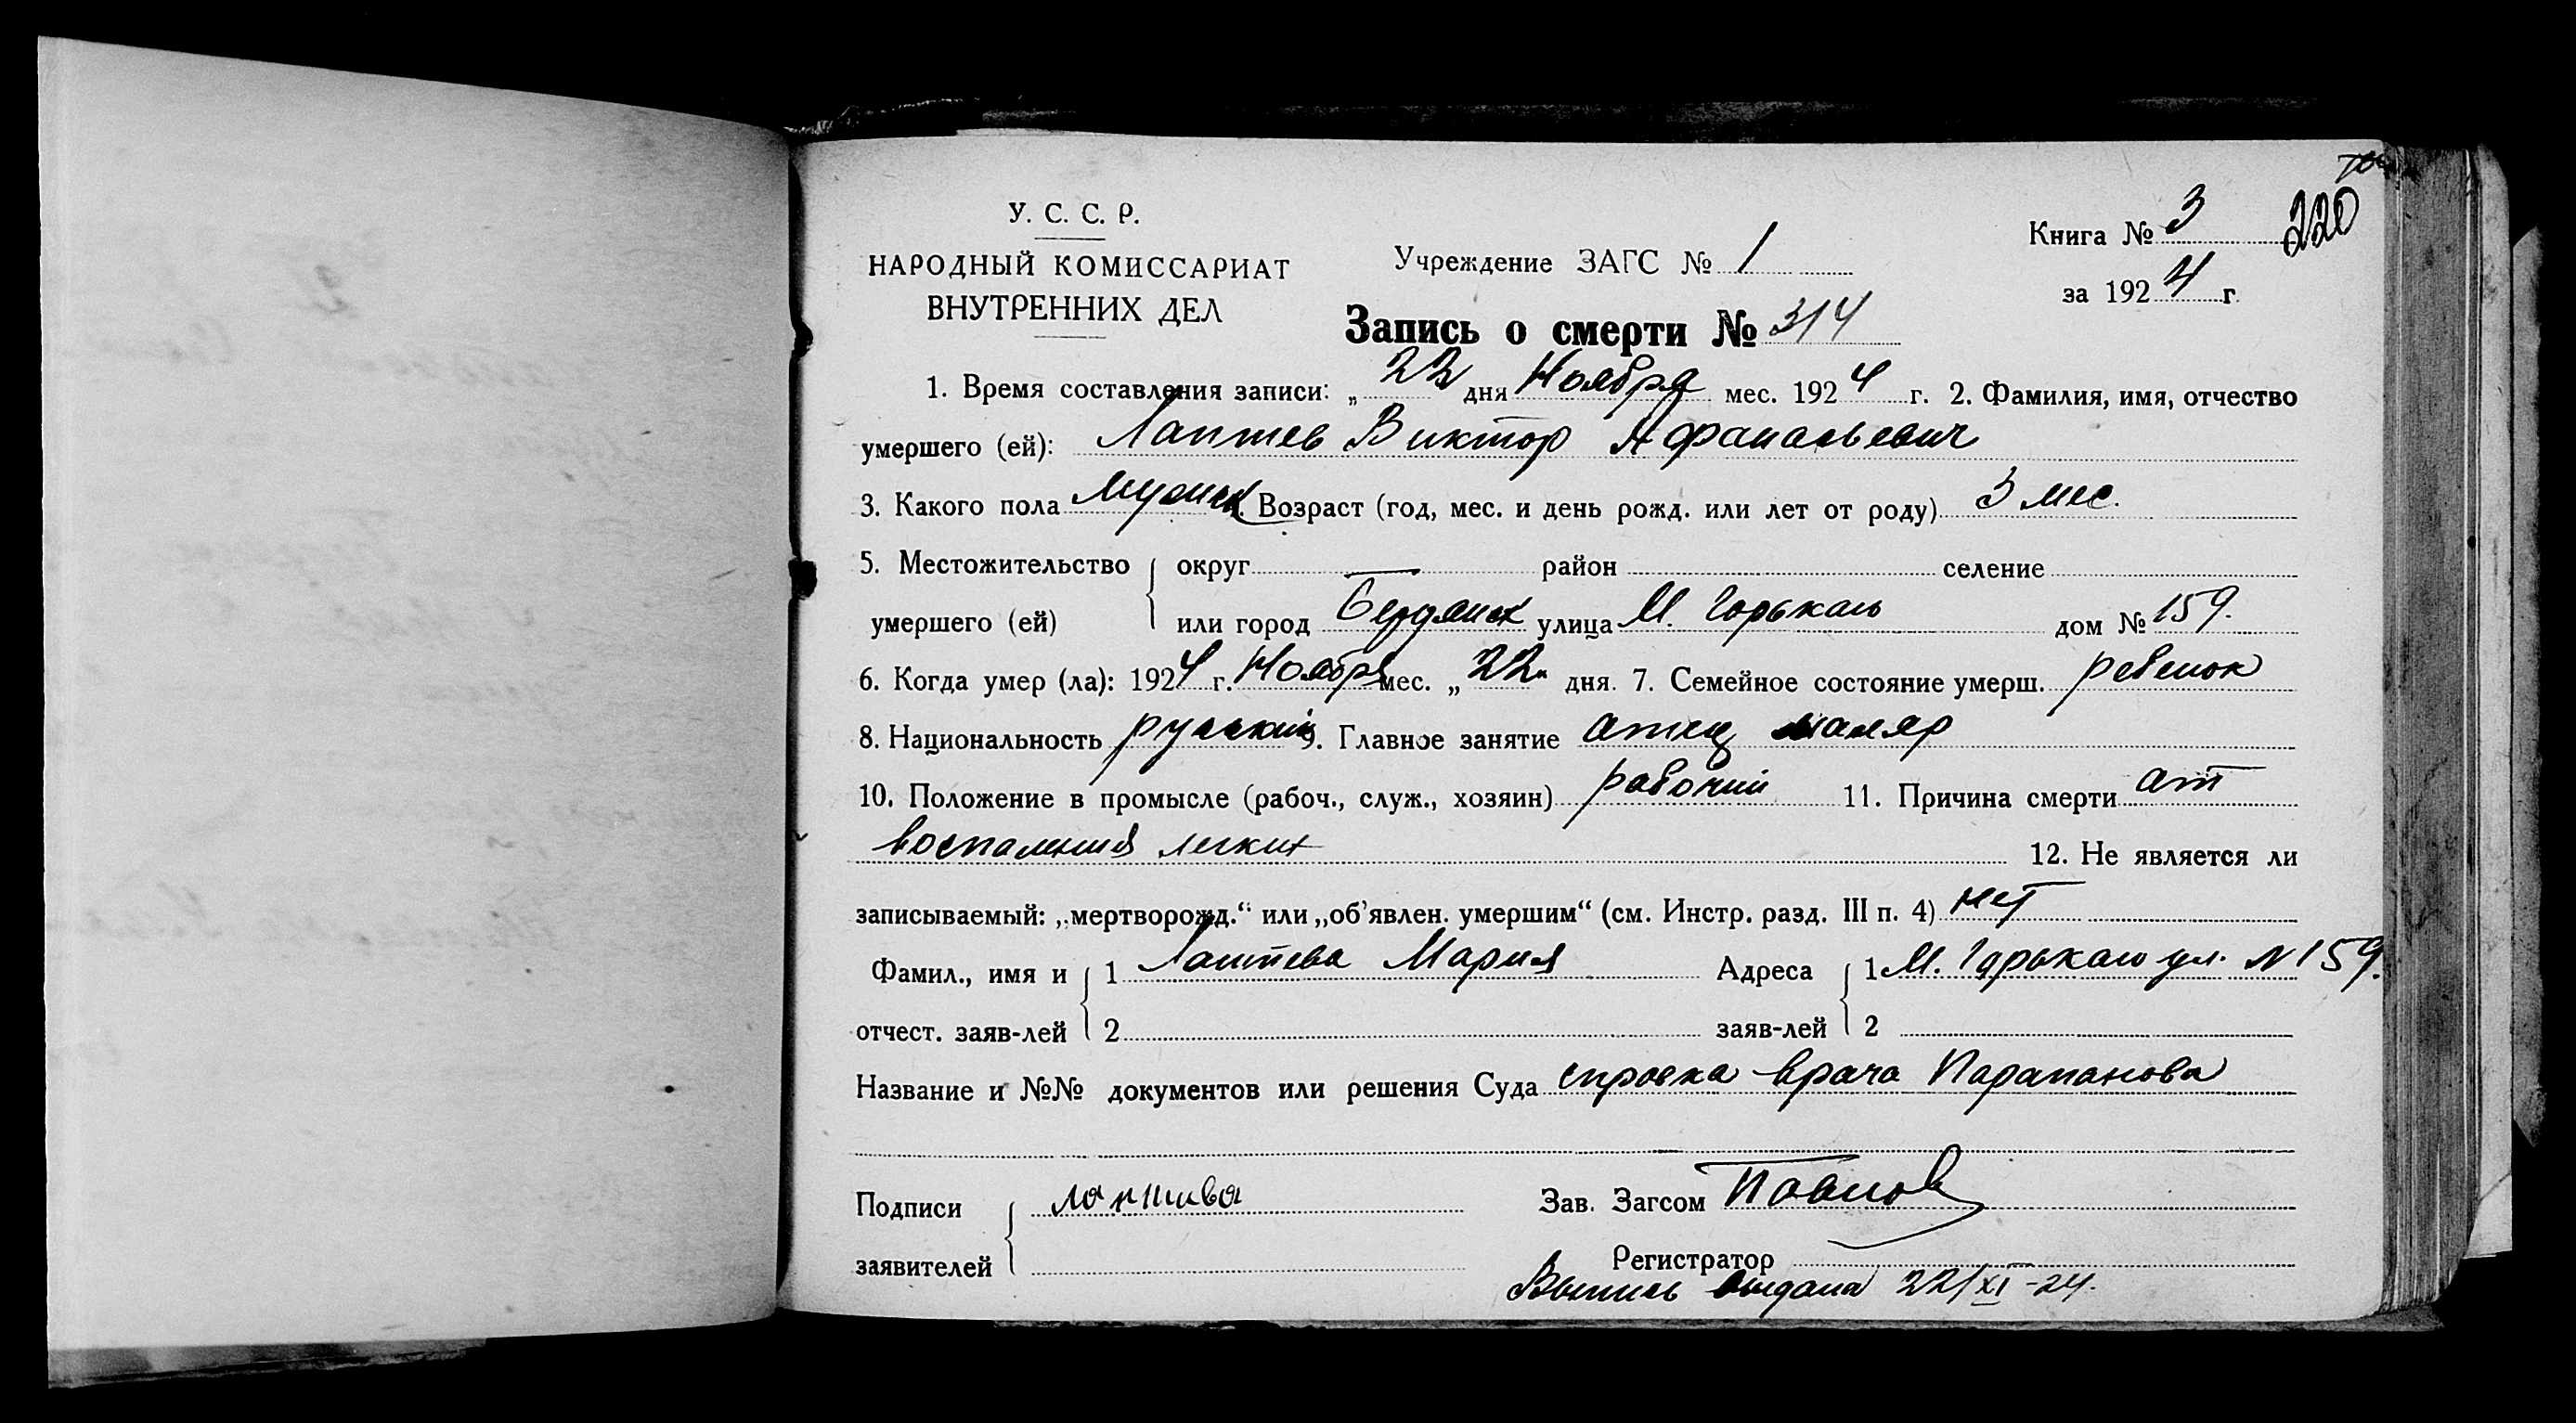 220
У. С. С. Р.
НАРОДНЫЙ КОМИССАРИАТ
ВНУТРЕННИХ ДЕЛ
Учреждение ЗАГС № 1
Книга № 3
за 1924 г.
Запись о смерти № 314
1. Время составления записи: „22 дня Ноября мес. 1924 г. 2. Фамилия, имя, отчество
умершего (ей): Лаптев Виктор Афанасьевич
3. Какого пола мужск. Возраст (год, мес. и день рожд. или лет от роду) 3 мес.
5. Местожительство округ район селение
умершего (ей) или город Бердянск улица М. Горькаго дом № 159.
6. Когда умер (ла): 1924 г. Ноября мес. „22“ дня. 7. Семейное состояние умерш. ребенок
8. Национальность русский 9. Главное занятие отец маляр
10. Положение в промысле (рабоч., служ., хозяин) рабочий 11. Причина смерти от
воспаления легких 12. Не является ли
записываемый: „мертворожд.“ или „об’явлен. умершим“ (см. Инстр. разд. III п. 4) нет
Фамил., имя и 1 Лаптева Мария Адреса 1 М. Горькаго ул. N 159.
отчест. заяв-лей 2 заяв-лей 2
Название и №№ документов или решения Суда справка врача Парапанова
Подписи Лаптива Зав. Загсом Павлов
заявителей Регистратор
Выпись выдана 22/XI-24.